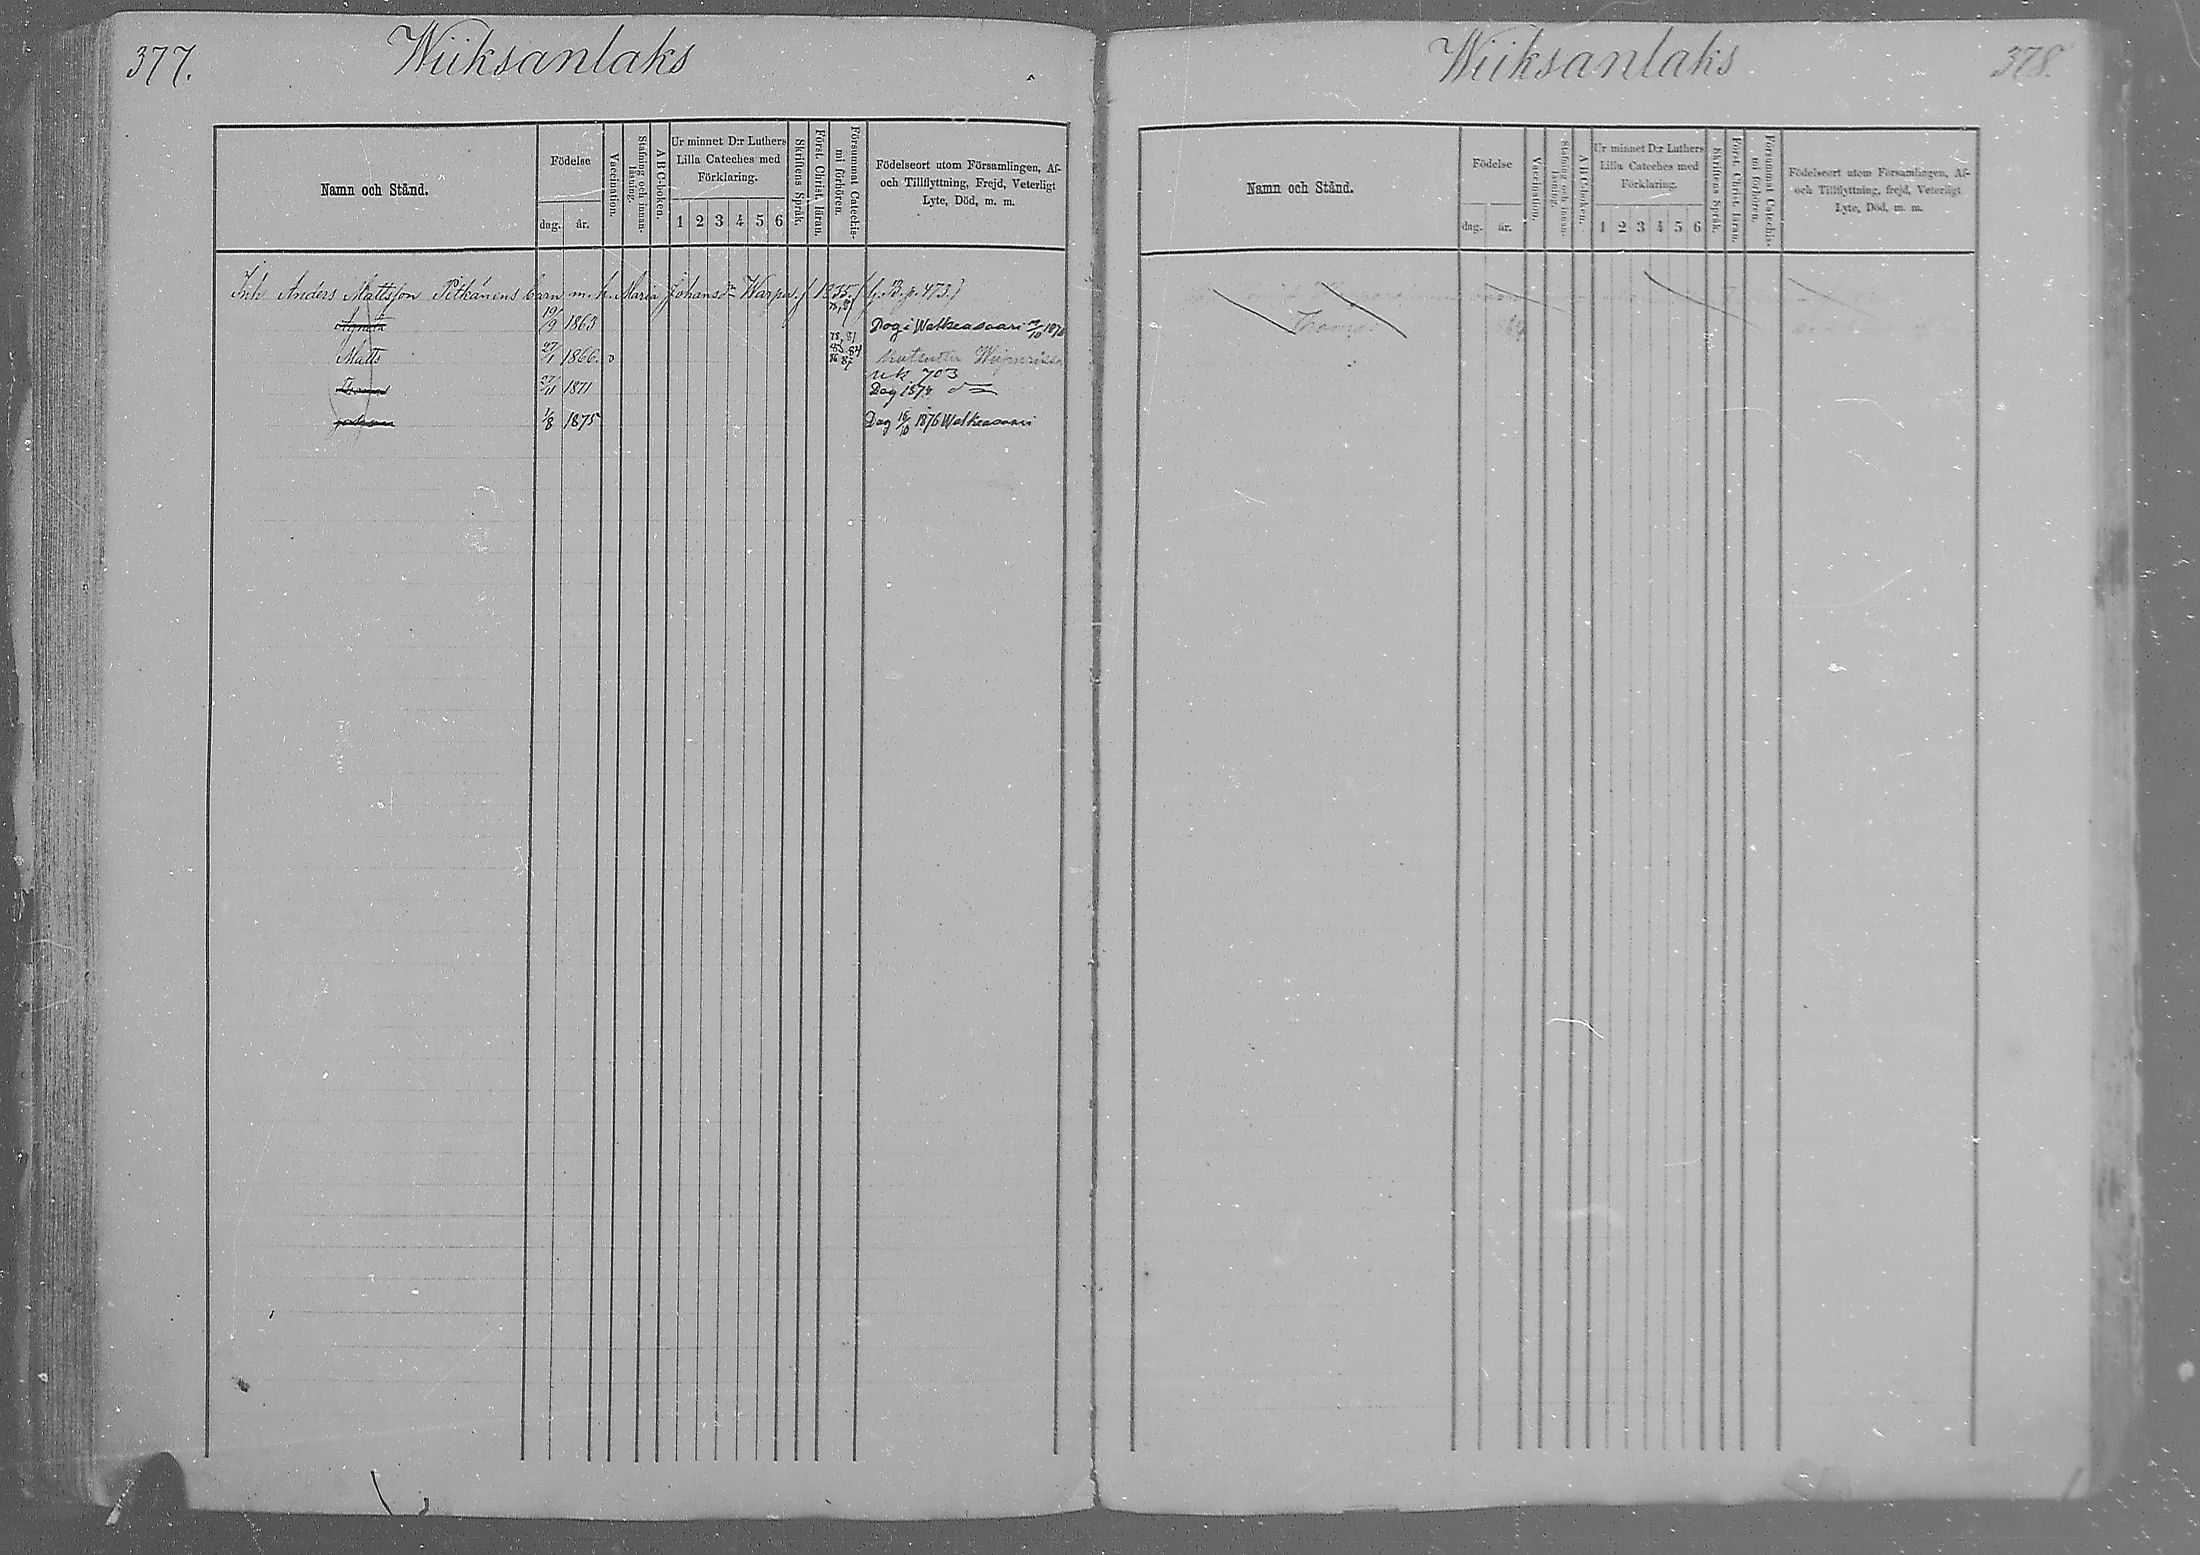 377.
Wiiksanlaks
Namn och Stånd.
Födelse
dag.
år.
Vaccination.
Stafning och innan-
läsning.
A B C-boken.
Ur minnet D:r Luthers
Lilla Cateches med
Förklaring.
1 2 3 4 5 6
Skriftens Språk.
Först. Christ. läran.
Försummat Catechis-
mi förhören.
Födelseort utom Församlingen, Af-
och Tillflyttning, Frejd, Veterligt
Lyte, Död, m. m.
Inh. Anders Mattsson Pitkänens barn m. h. Maria Johansdr Warpa f. 1835. (g. B. p. 473.)
Agneta 19/9 1863 Dog i Walkeasaari 1876
78, 81
Matts 27/1 1866. 84 86 87
703
Thomas 27/11 1871 Dog 187
Johan 1/8 1875 Dog 16/10 1876 Walkeasaari
Wiiksanlaks
378.
Namn och Stånd.
Födelse
dag.
år.
Vaccination.
Stafning och innan-
läsning.
A B C-boken.
Ur minnet D:r Luthers
Lilla Cateches med
Förklaring.
1 2 3 4 5 6
Skriftens Språk.
Först. Christ. läran.
Försummat Catechis-
mi förhören.
Födelseort utom Församlingen, Af-
och Tillflyttning, frejd, Veterligt
Lyte, Död, m. m.
Thomas 64